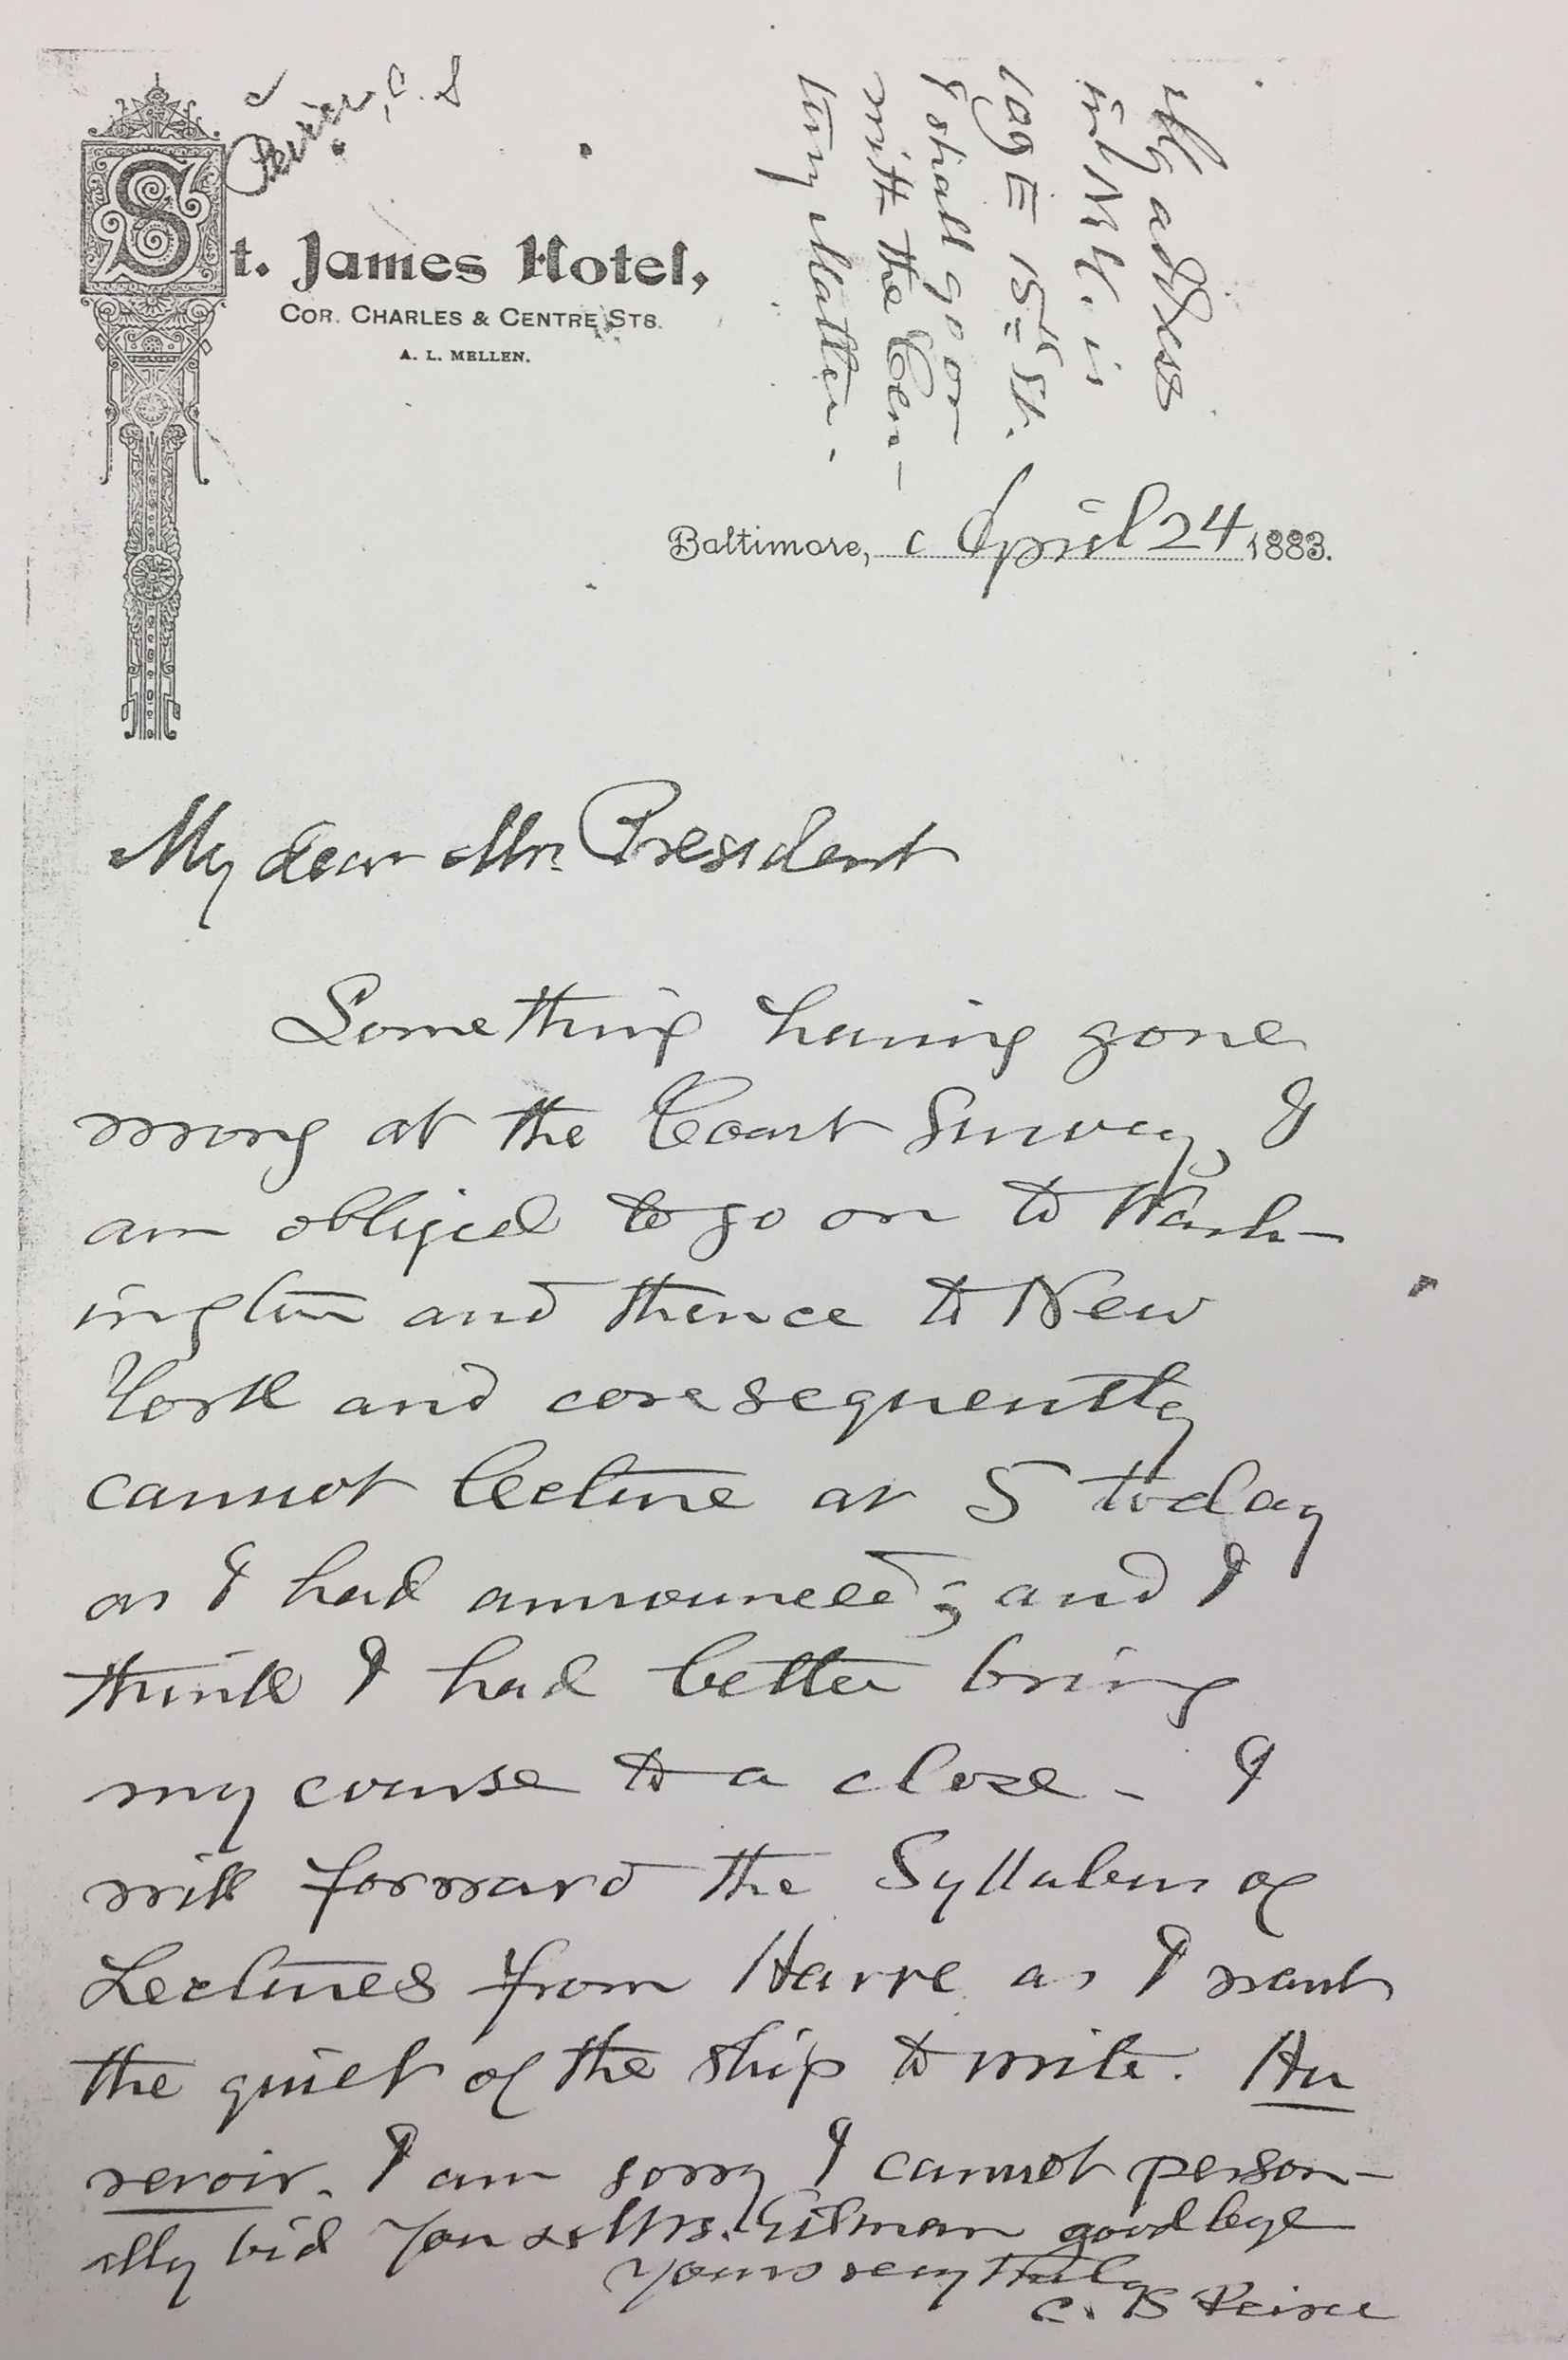 Peirce, C. S
St. James Hotel,
COR. CHARLES & CENTRE STS.
A. L. MELLEN.
My address
in N.Y. is
109 E 15th St.
I shall go on
with the Cen-
tury Matter.
Baltimore, April 24 1883.
My dear Mr. President
Something having gone
wrong at the Coast Survey, I
am obliged to go on to Wash-
ington and thence to New
York and consequently
cannot lecture at 5 today
as I had announced; and I
think I had better bring
my course to a close - I
will forward the Syllabus of
Lectures from Havre as I want
the quiet of the ship to write. Au
revoir. I am sorry I cannot person-
ally bid you & Mrs. Gilman goodbye
Yours very truly
C. S Peirce